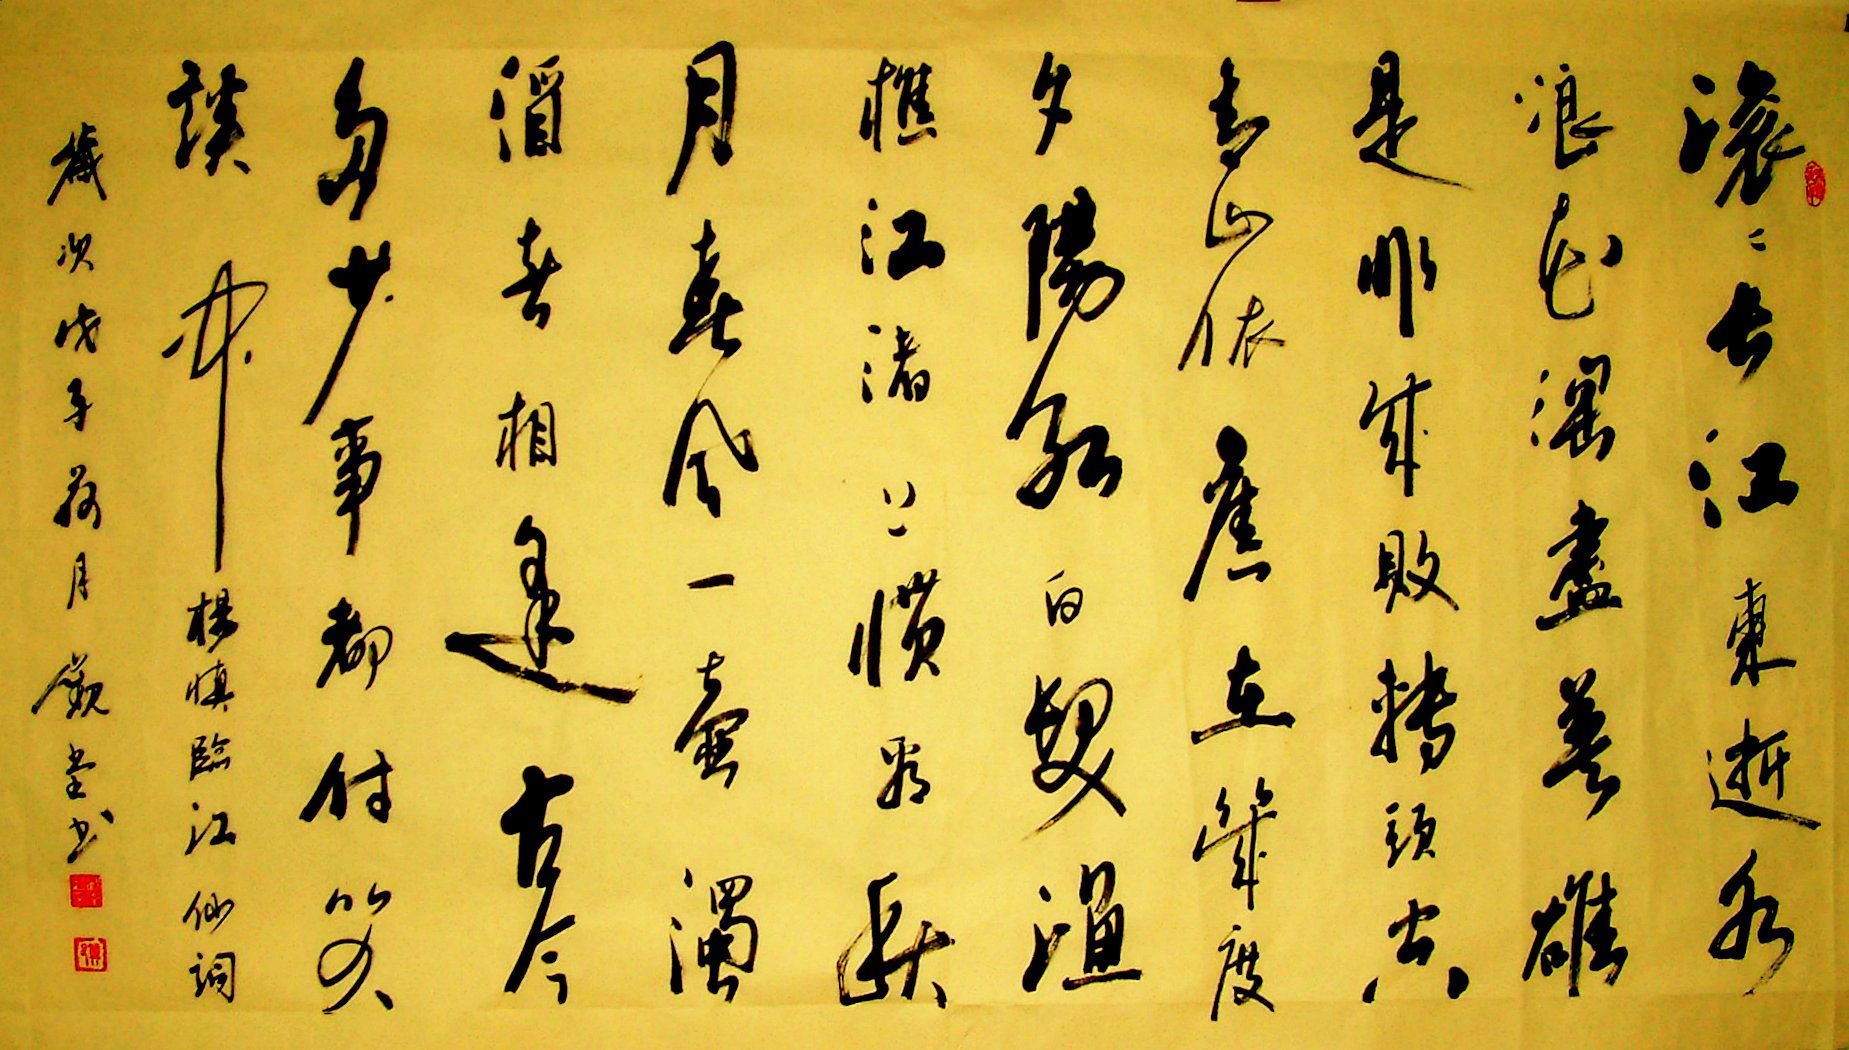 滾〻長江東逝水
浪花淘盡英雄
是非成敗轉頭空
青山依舊在幾度
夕陽紅白髮漁
樵江渚上慣看秋
月春風一壺濁
酒喜相逢古今
多少事都付笑
談中 楊慎臨江仙詞
歲次戊子荷月觀堂书